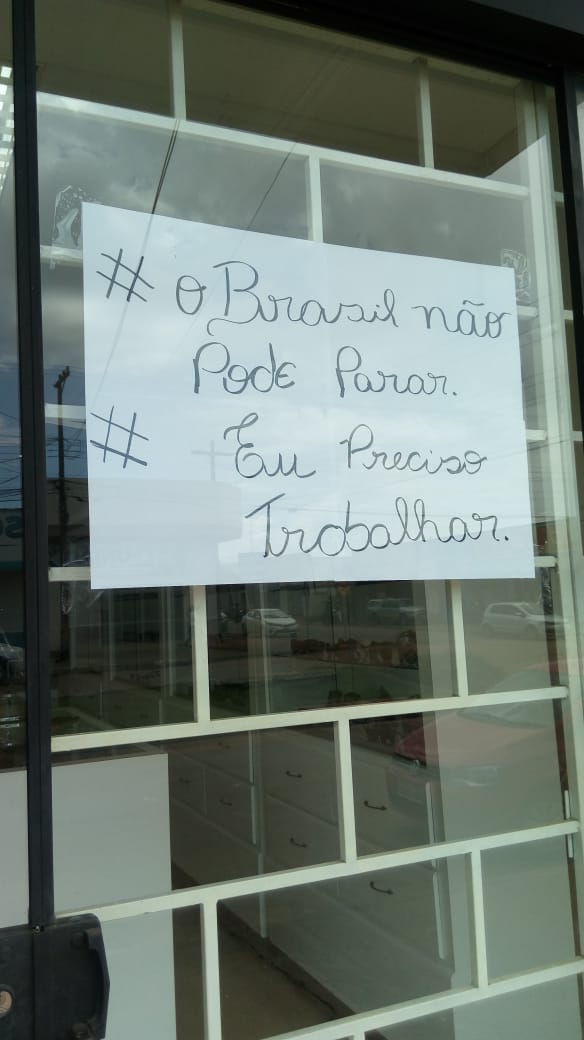 # O Brasil não
Pode Parar.
# Eu Preciso
Trabalhar.